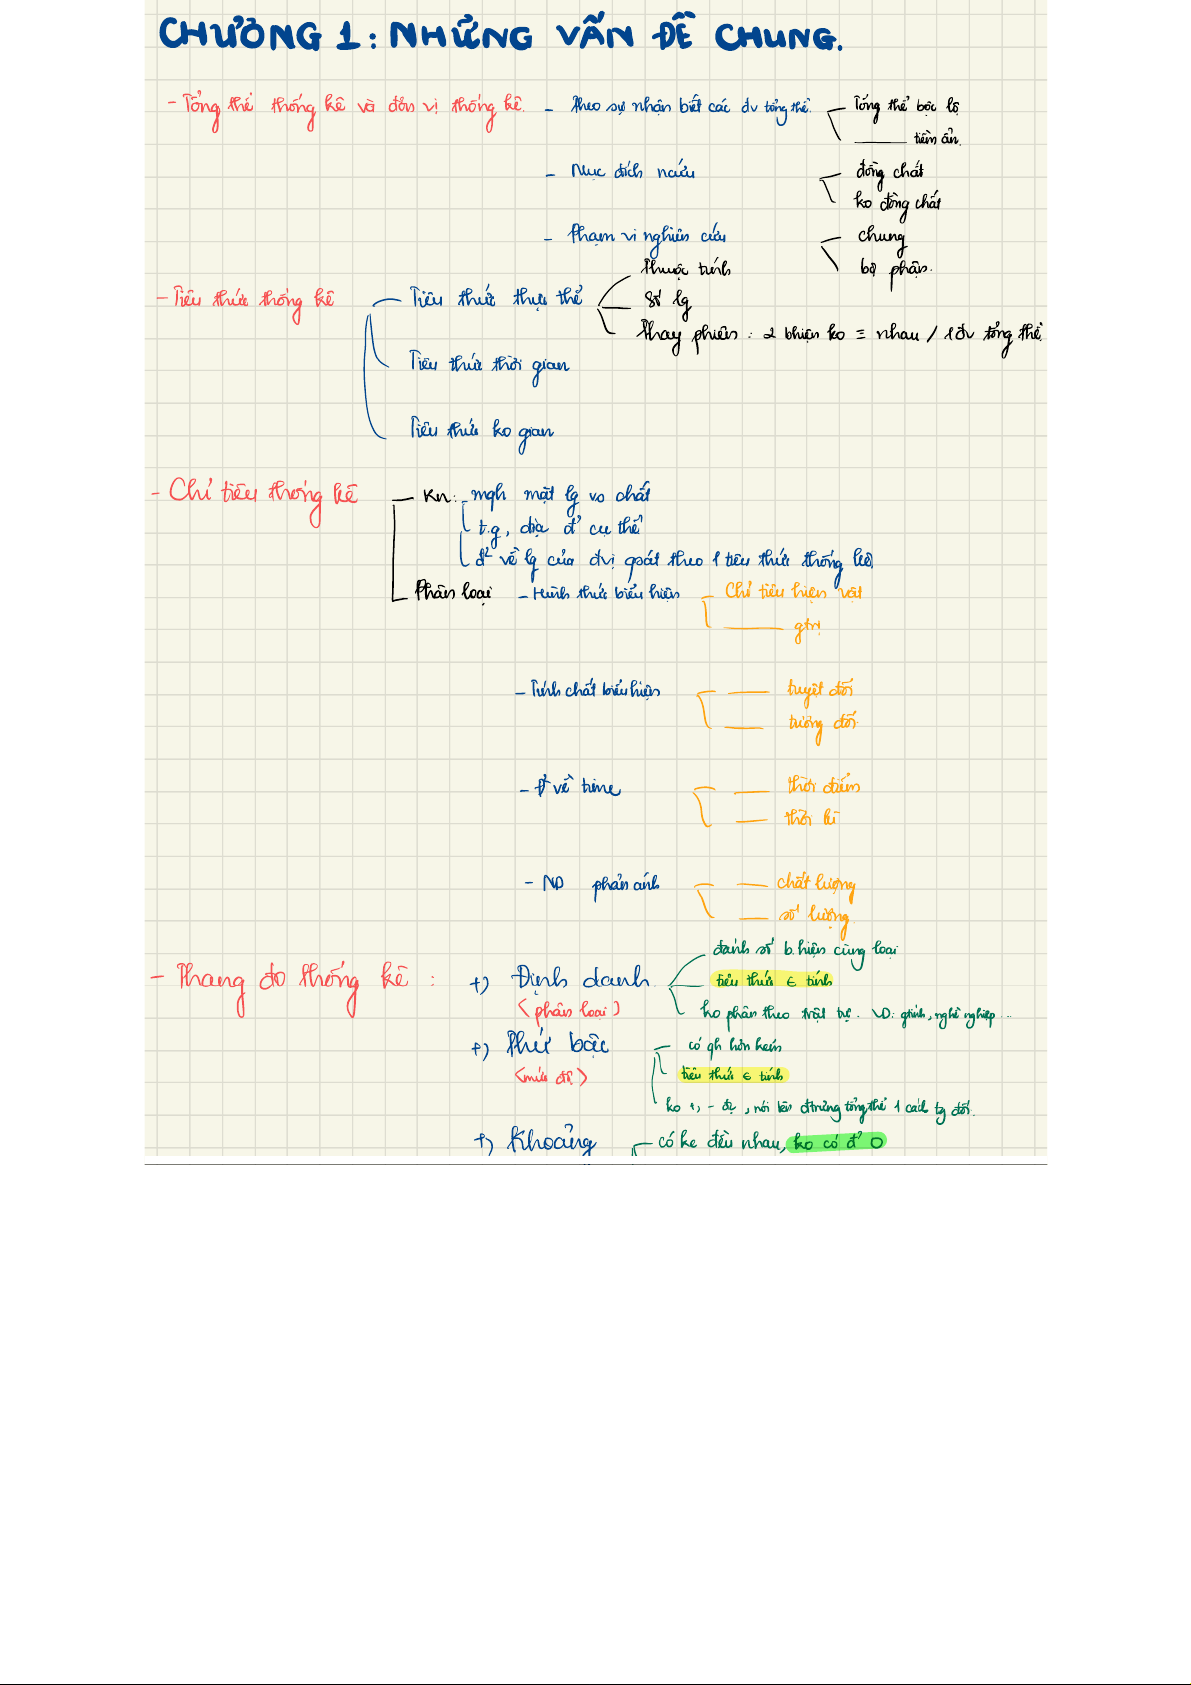 CHƯƠNG 1: NHỮNG VẤN ĐỀ CHUNG.
- Tổng thể thống kê và đơn vị thống kê. - Theo sự nhận biết các đv tổng thể. Tổng thể bộc lộ
—— tiềm ẩn.
- Mục đích ncứu đồng chất
ko đồng chất
- Phạm vi nghiên cứu chung
bộ phận.
- Tiêu thức thống kê Tiêu thức thực thể Thuộc tính
số lg
Thay phiên: 2 bhiện ko ≡ nhau / 1 đv tổng thể.
Tiêu thức thời gian
Tiêu thức ko gian
- Chỉ tiêu thống kê Kn: - mqh mặt lg vs chất
t.g, địa đ' cụ thể
đ² về lg của đvị qsát theo 1 tiêu thức thống kê.
Phân loại - Hình thức biểu hiện - Chỉ tiêu hiện vật
—— gtrị
- Tính chất biểu hiện —— tuyệt đối
—— tương đối.
- Đ² về time —— thời điểm
—— thời kì
- ND phản ánh —— chất lượng
—— số lượng.
- Thang đo thống kê: +) Định danh. đánh số b.hiện cùng loại
<phân loại> tiêu thức ∈ tính
ko phân theo trật tự. VD: gtính, nghề nghiệp...
+) Thứ bậc có qh hơn kém
<mức độ> tiêu thức ∈ tính
ko +, - đc, nói lên đtrưng tổng thể 1 cách tg đối.
+) Khoảng có kc đều nhau, ko có đ' 0